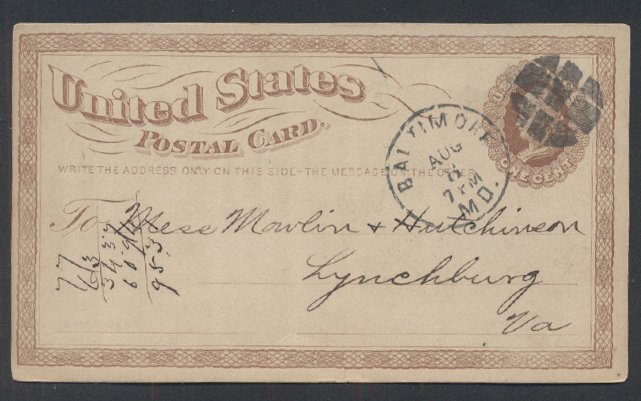 United States
POSTAL CARD.
WRITE THE ADDRESS ONLY ON THIS SIDE - THE MESSAGE ON THE OTHER
BALTIMORE
AUG
7 PM
MD.
ONE CENT
To Mess Mowlin & Hutchinson
Lynchburg
Va
77
63